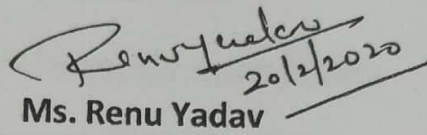 Renuyadav
20/2/2020
Ms. Renu Yadav